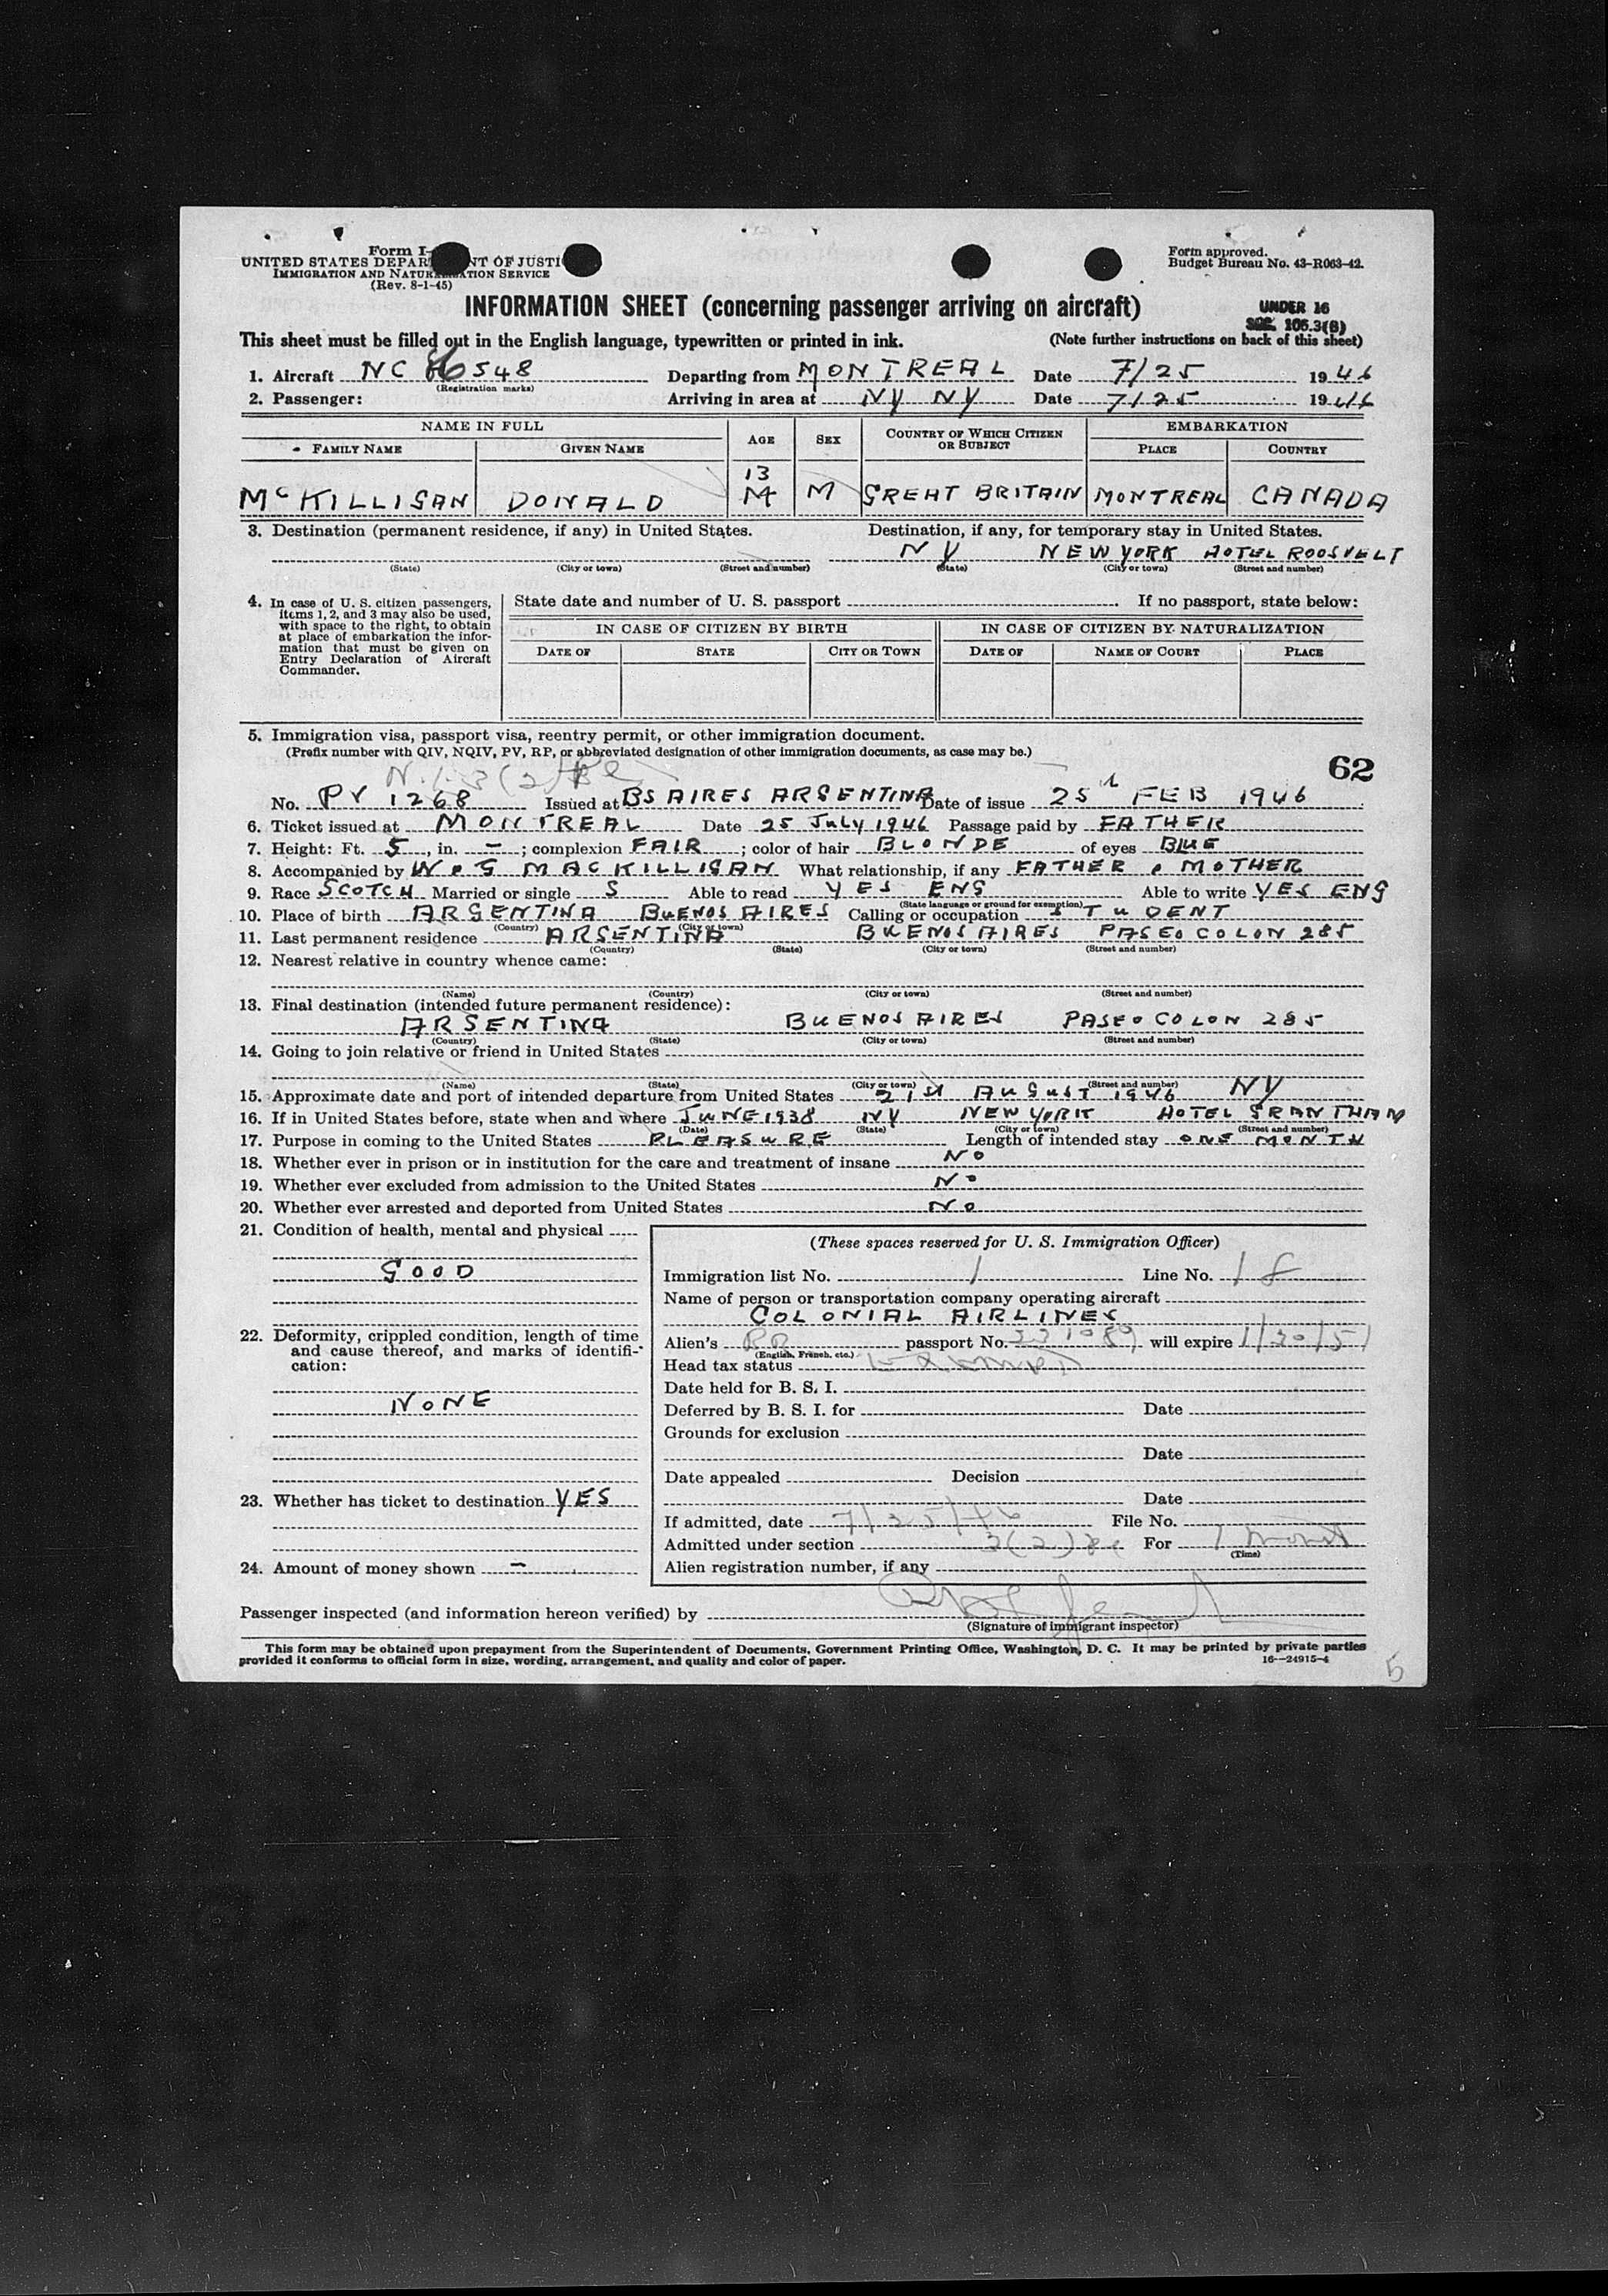 Form I-
UNITED STATES DEPAR NT OF JUSTI
IMMIGRATION AND NATUR ATION SERVICE
(Rev. 8-1-45)
Form approved.
Budget Bureau No. 43-R063-42.
INFORMATION SHEET (concerning passenger arriving on aircraft)
UNDER 16
SEC. 105.3(B)
This sheet must be filled out in the English language, typewritten or printed in ink. (Note further instructions on back of this sheet)
1. Aircraft NC 86548 Departing from MONTREAL Date 7/25 1946
(Registration marks)
2. Passenger: Arriving in area at NY NY Date 7/25 1946
NAME IN FULL AGE SEX COUNTRY OF WHICH CITIZEN OR SUBJECT EMBARKATION
FAMILY NAME GIVEN NAME PLACE COUNTRY
13
McKILLIGAN DONALD M M GREAT BRITAIN MONTREAL CANADA
3. Destination (permanent residence, if any) in United States. Destination, if any, for temporary stay in United States.
NY NEW YORK HOTEL ROOSVELT
(State) (City or town) (Street and number) (State) (City or town) (Street and number)
4. In case of U. S. citizen passengers, items 1, 2, and 3 may also be used, with space to the right, to obtain at place of embarkation the information that must be given on Entry Declaration of Aircraft Commander.
State date and number of U. S. passport If no passport, state below:
IN CASE OF CITIZEN BY BIRTH IN CASE OF CITIZEN BY NATURALIZATION
DATE OF STATE CITY OR TOWN DATE OF NAME OF COURT PLACE
5. Immigration visa, passport visa, reentry permit, or other immigration document.
(Prefix number with QIV, NQIV, PV, RP, or abbreviated designation of other immigration documents, as case may be.)
62
No. PV 1268 Issued at BS AIRES ARGENTINA Date of issue 25 FEB 1946
6. Ticket issued at MONTREAL Date 25 July 1946 Passage paid by FATHER
7. Height: Ft. 5, in. - ; complexion FAIR ; color of hair BLONDE of eyes BLUE
8. Accompanied by W & G MACKILLIGAN What relationship, if any FATHER & MOTHER
9. Race SCOTCH Married or single S Able to read YES ENG Able to write YES ENG
(State language or ground for exemption)
10. Place of birth ARGENTINA BUENOS AIRES Calling or occupation STUDENT
(Country) (City or town)
11. Last permanent residence ARGENTINA BUENOS AIRES PASEO COLON 285
(Country) (State) (City or town) (Street and number)
12. Nearest relative in country whence came:
(Name) (Country) (City or town) (Street and number)
13. Final destination (intended future permanent residence):
ARGENTINA BUENOS AIRES PASEO COLON 285
(Country) (State) (City or town) (Street and number)
14. Going to join relative or friend in United States
(Name) (State) (City or town) (Street and number)
15. Approximate date and port of intended departure from United States 21st AUGUST 1946 NY
16. If in United States before, state when and where JUNE 1938 NY NEW YORK HOTEL GRANTHAM
(Date) (State) (City or town) (Street and number)
17. Purpose in coming to the United States PLEASURE Length of intended stay ONE MONTH
18. Whether ever in prison or in institution for the care and treatment of insane NO
19. Whether ever excluded from admission to the United States NO
20. Whether ever arrested and deported from United States NO
21. Condition of health, mental and physical
GOOD
22. Deformity, crippled condition, length of time and cause thereof, and marks of identification:
NONE
23. Whether has ticket to destination YES
24. Amount of money shown -
(These spaces reserved for U. S. Immigration Officer)
Immigration list No. 1 Line No. 18
Name of person or transportation company operating aircraft
COLONIAL AIRLINES
Alien's passport No. 331089 will expire 1/30/51
(English, French, etc.)
Head tax status
Date held for B. S. I.
Deferred by B. S. I. for Date
Grounds for exclusion
Date
Date appealed Decision
Date
If admitted, date 7/25/46 File No.
Admitted under section 3(2) For 1 month
(Time)
Alien registration number, if any
Passenger inspected (and information hereon verified) by
(Signature of immigrant inspector)
This form may be obtained upon prepayment from the Superintendent of Documents, Government Printing Office, Washington, D. C. It may be printed by private parties
provided it conforms to official form in size, wording, arrangement, and quality and color of paper. 16—24915-4
5